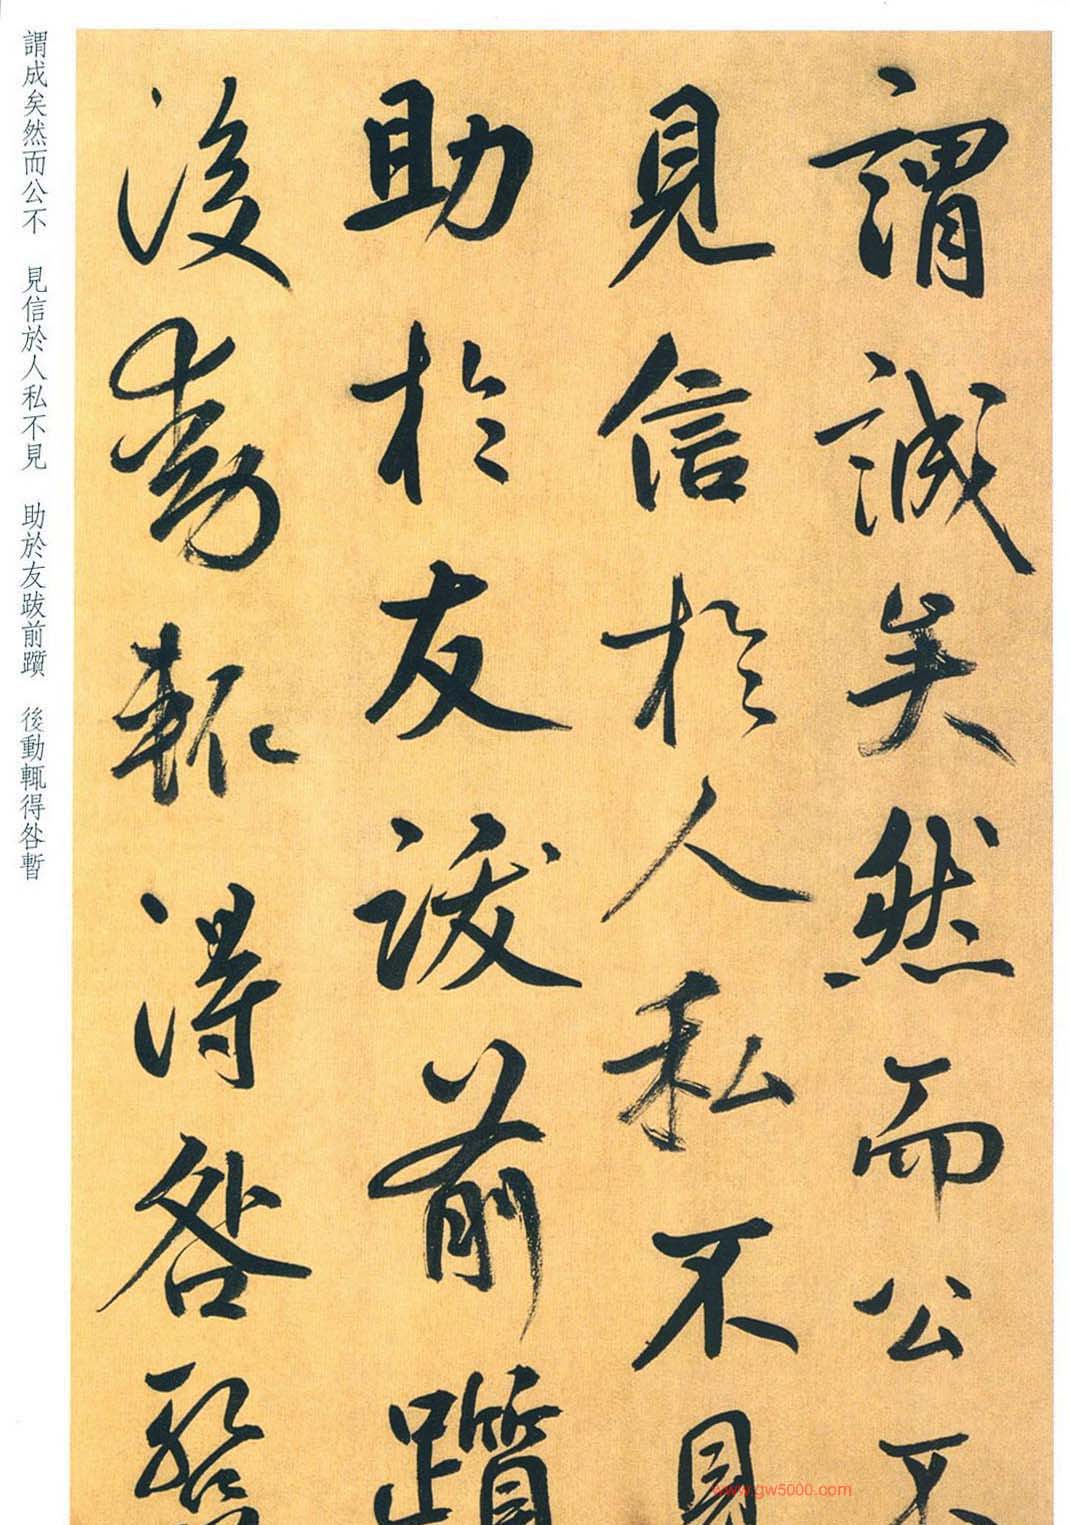 謂誠矣然而公不
見信於人私不見
助於友跋前躓
後動輒得咎暫
謂成矣然而公不　見信於人私不見　助於友跋前躓　後動輒得咎暫
www.gw5000.com